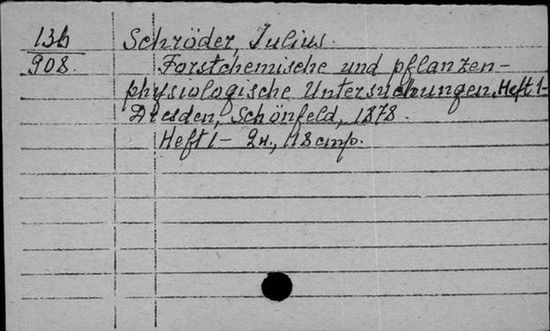 13b Schröder, Julius.
908. Forstchemische und pflanzen-
physiologische Untersuchungen. Heft 1-
Dresden, Schönfeld, 1878.
Heft 1 - 2 н., 118 стр.